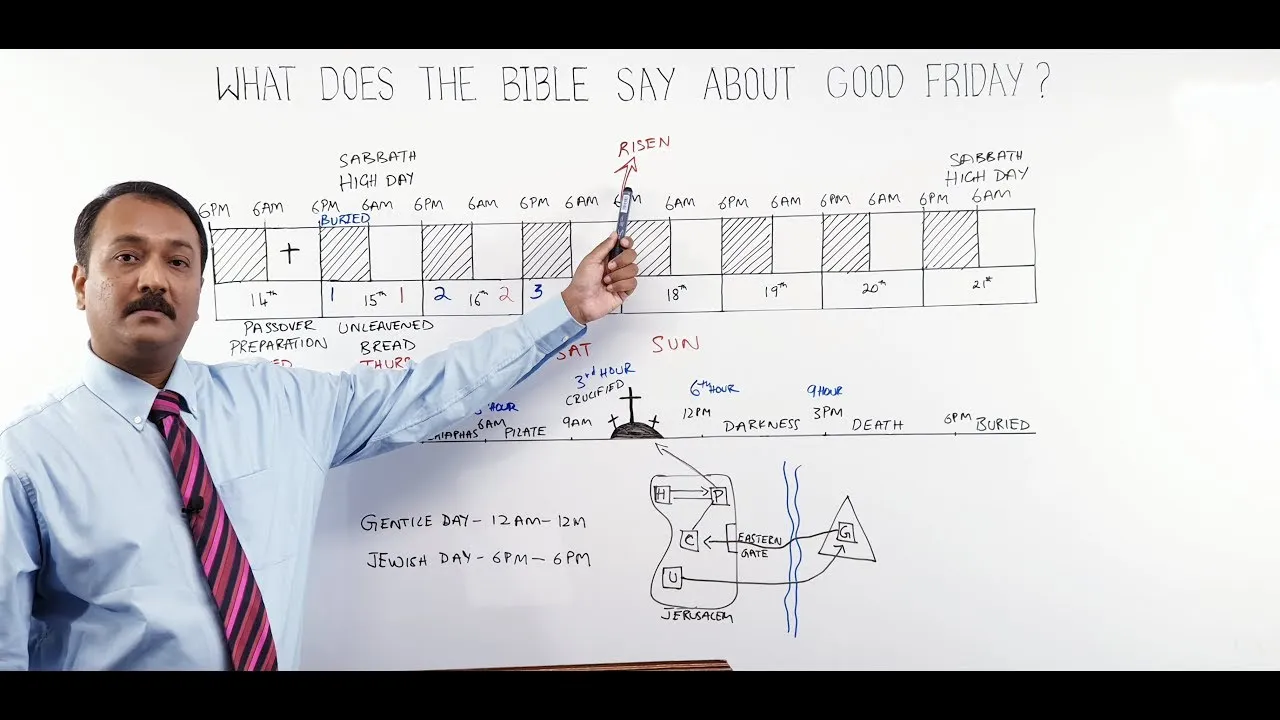 WHAT DOES THE BIBLE SAY ABOUT GOOD FRIDAY?
RISEN
SABBATH
HIGH DAY
SABBATH
HIGH DAY
6PM 6AM 6PM 6AM 6PM 6AM 6PM 6AM 6AM 6PM 6AM 6PM 6AM 6PM 6AM
BURIED
14th 1 15th 1 2 16th 2 3 18th 19th 20th 21st
PASSOVER
PREPARATION
UNLEAVENED
BREAD
SAT SUN
3rd HOUR
CRUCIFIED
6th HOUR
9 HOUR
HOUR
6AM PILATE 9AM 12PM DARKNESS 3PM DEATH 6PM BURIED
H P
C EASTERN
GATE
G
U
JERUSALEM
GENTILE DAY - 12AM - 12M
JEWISH DAY - 6PM - 6PM